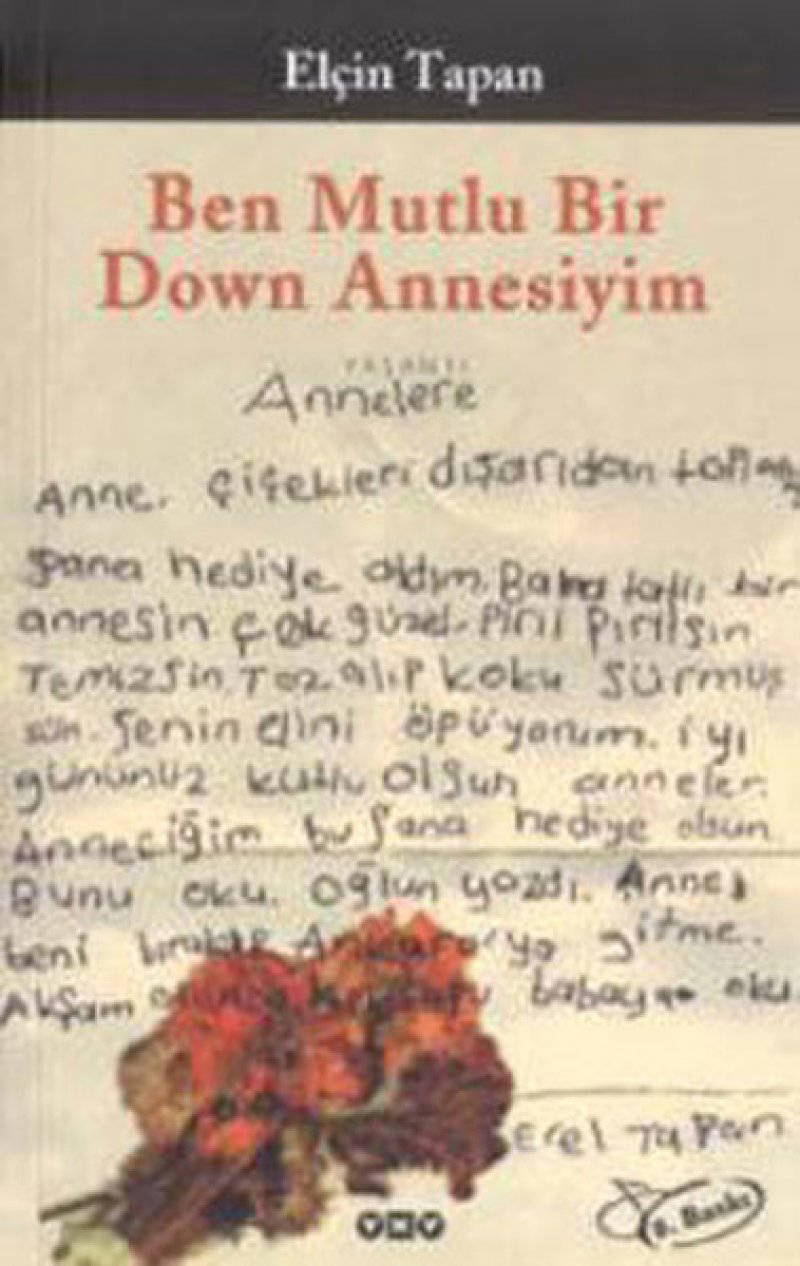 Elçin Tapan
Ben Mutlu Bir
Down Annesiyim
YAŞANTI
Annelere
Anne. Çiçekleri dışarıdan
Sana hediye aldım. Bana tatlı bir
annesin çok güzel. Pırıl pırılsın
Temizsin. Toz. alıp koku sürmüş
sün. Senin elini öpüyorum. iyi
gününüz kutlu olsun anneler.
Anneciğim bu sana hediye olsun
Bunu oku. Oğlun yazdı. Anne
beni bırakıp Ankara'ya gitme.
Akşam babaya oku.
Erel Tapan
YKY
Baskı